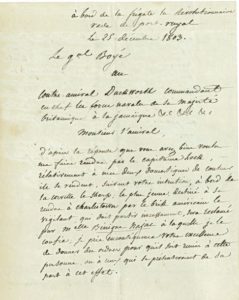 à bord de la frégate la Revolutionnaire
rade de port-royal
Le 25 décembre 1803.
Le g.al Boyé
au
contre amiral Duckworth commandant
en chef les forces navales de sa majesté
britannique à la jamaïque
Monsieur l'amiral.
D'après la réponse que vous avez bien voulu
me faire rendre par le capitaine
relativement à mes deux domestiques de couleur
je le rendrai, suivant votre intention, à bord de
la le plus jeune destiné à se
rendre à charlestown par le brick américain le
vigilant qui doit partir
par m.elle à laquelle je le
confie, je prie votre excellence
de donner des ordres pour qu'il soit remis à cette
personne, ou à ceux qui se présenteront de sa
part à cet effet.